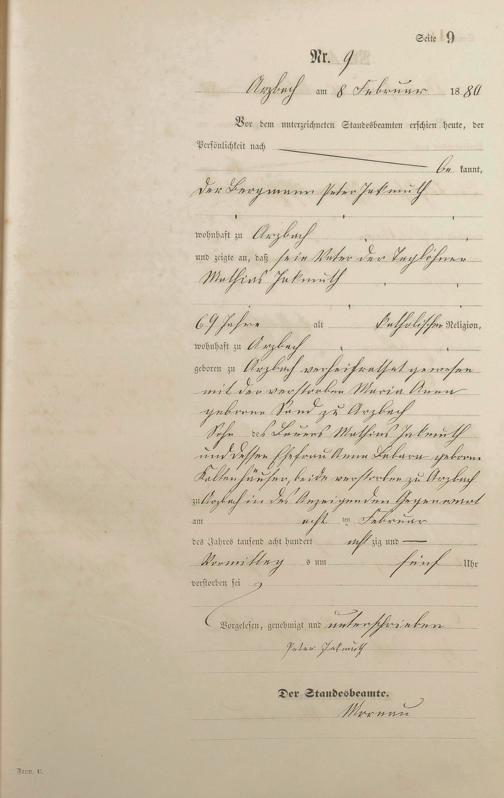 Seite 9
Nr. 9
Arzbach am 8 Februar 1880
Vor dem unterzeichneten Standesbeamten erschien heute, der
Persönlichkeit nach
be kannt,
der Bergmann Peter Jakmuth
wohnhaft zu Arzbach
und zeigte an, daß sein Vater der Taglöhner
Mathias Jakmuth
69 Jahre alt katholischer Religion,
wohnhaft zu Arzbach
geboren zu Arzbach verheirathet gewesen
mit der verstorben Maria Anna
geborene Sand zu Arzbach
Sohn des Bauers Mathias Jakmuth
und dessen Ehefrau Anna Babara geborene
Kaltenhäuser, beide verstorben zu Arzbach
zu Arzbach in des Anzeigenden Gegenwart
am acht ten Februar
des Jahres tausend acht hundert acht zig und
Vormittag s um fünf Uhr
verstorben sei
Vorgelesen, genehmigt und unterschrieben
Peter Jakmuth
Der Standesbeamte.
Form. C.